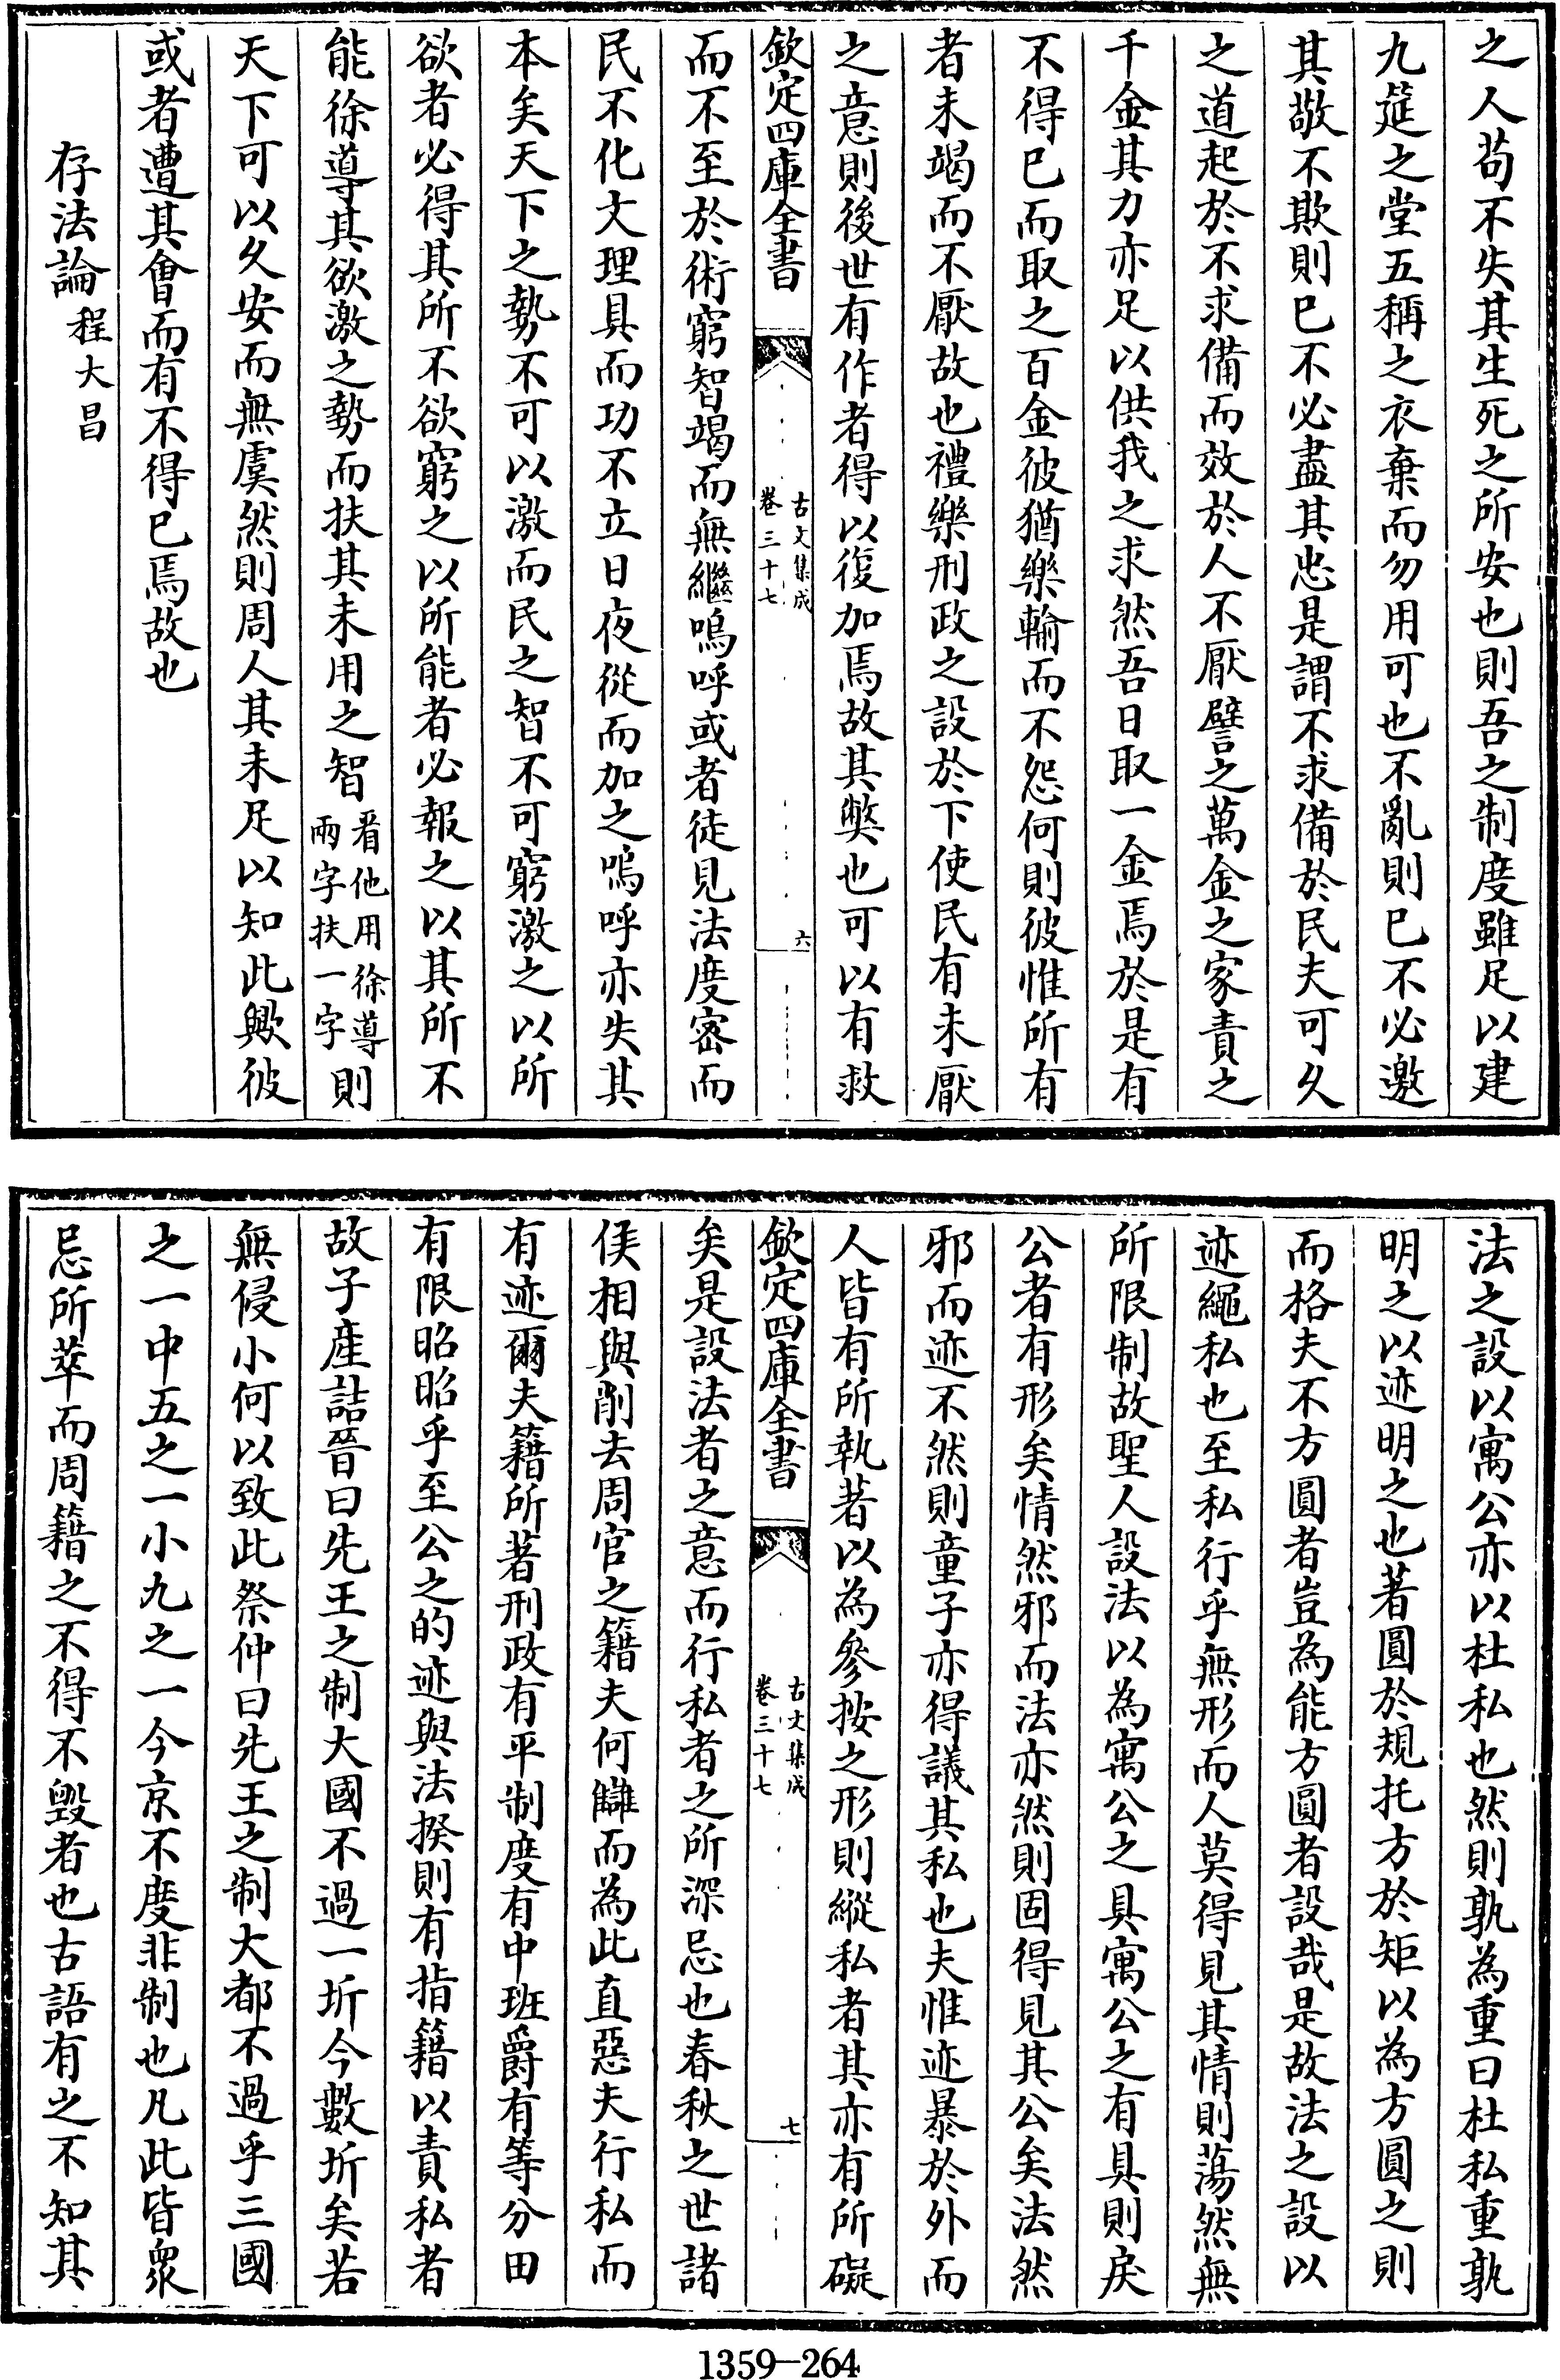 之人苟不失其生死之所安也則吾之制度雖足以建
九筵之堂五稱之衣棄而勿用可也不亂則已不必邀
其敬不欺則已不必盡其忠是謂不求備於民夫可久
之道起於不求備而效於人不厭譬之萬金之家責之
千金其力亦足以供我之求然吾日取一金焉於是有
不得已而取之百金彼猶樂輸而不怨何則彼惟所有
者未竭而不厭故也禮樂刑政之設於下使民有未厭
之意則後世有作者得以復加焉故其獘也可以有救
欽定四庫全書
古文集成
卷三十七
六
而不至於術窮智竭而無繼嗚呼或者徒見法度宻而
民不化文理具而功不立日夜從而加之嗚呼亦失其
本矣天下之勢不可以激而民之智不可窮激之以所
欲者必得其所不欲窮之以所能者必報之以其所不
能徐導其欲激之勢而扶其未用之智看他用徐導兩字扶一字則
天下可以久安而無虞然則周人其未足以知此歟彼
或者遭其會而有不得已焉故也
存法論 程大昌
法之設以寓公亦以杜私也然則孰為重曰杜私重孰
明之以迹明之也著圓於規托方於矩以為方圓之則
而格夫不方圓者豈為能方圓者設哉是故法之設以
迹繩私也至私行乎無形而人莫得見其情則蕩然無
所限制故聖人設法以為寓公之具寓公之有具則戾
公者有形矣情然邪而法亦然則固得見其公矣法然
邪而迹不然則童子亦得議其私也夫惟迹暴於外而
人皆有所執著以為參按之形則縱私者其亦有所礙
欽定四庫全書
古文集成
卷三十七
七
矣是設法者之意而行私者之所深忌也春秋之世諸
侯相與削去周官之籍夫何讎而為此直惡夫行私而
有迹爾夫籍所著刑政有平制度有中班爵有等分田
有限昭昭乎至公之的迹與法揆則有指籍以責私者
故子產詰晉曰先王之制大國不過一圻今數圻矣若
無侵小何以致此祭仲曰先王之制大都不過乎三國
之一中五之一小九之一今京不度非制也凡此皆衆
忌所萃而周籍之不得不毁者也古語有之不知其
1359-264